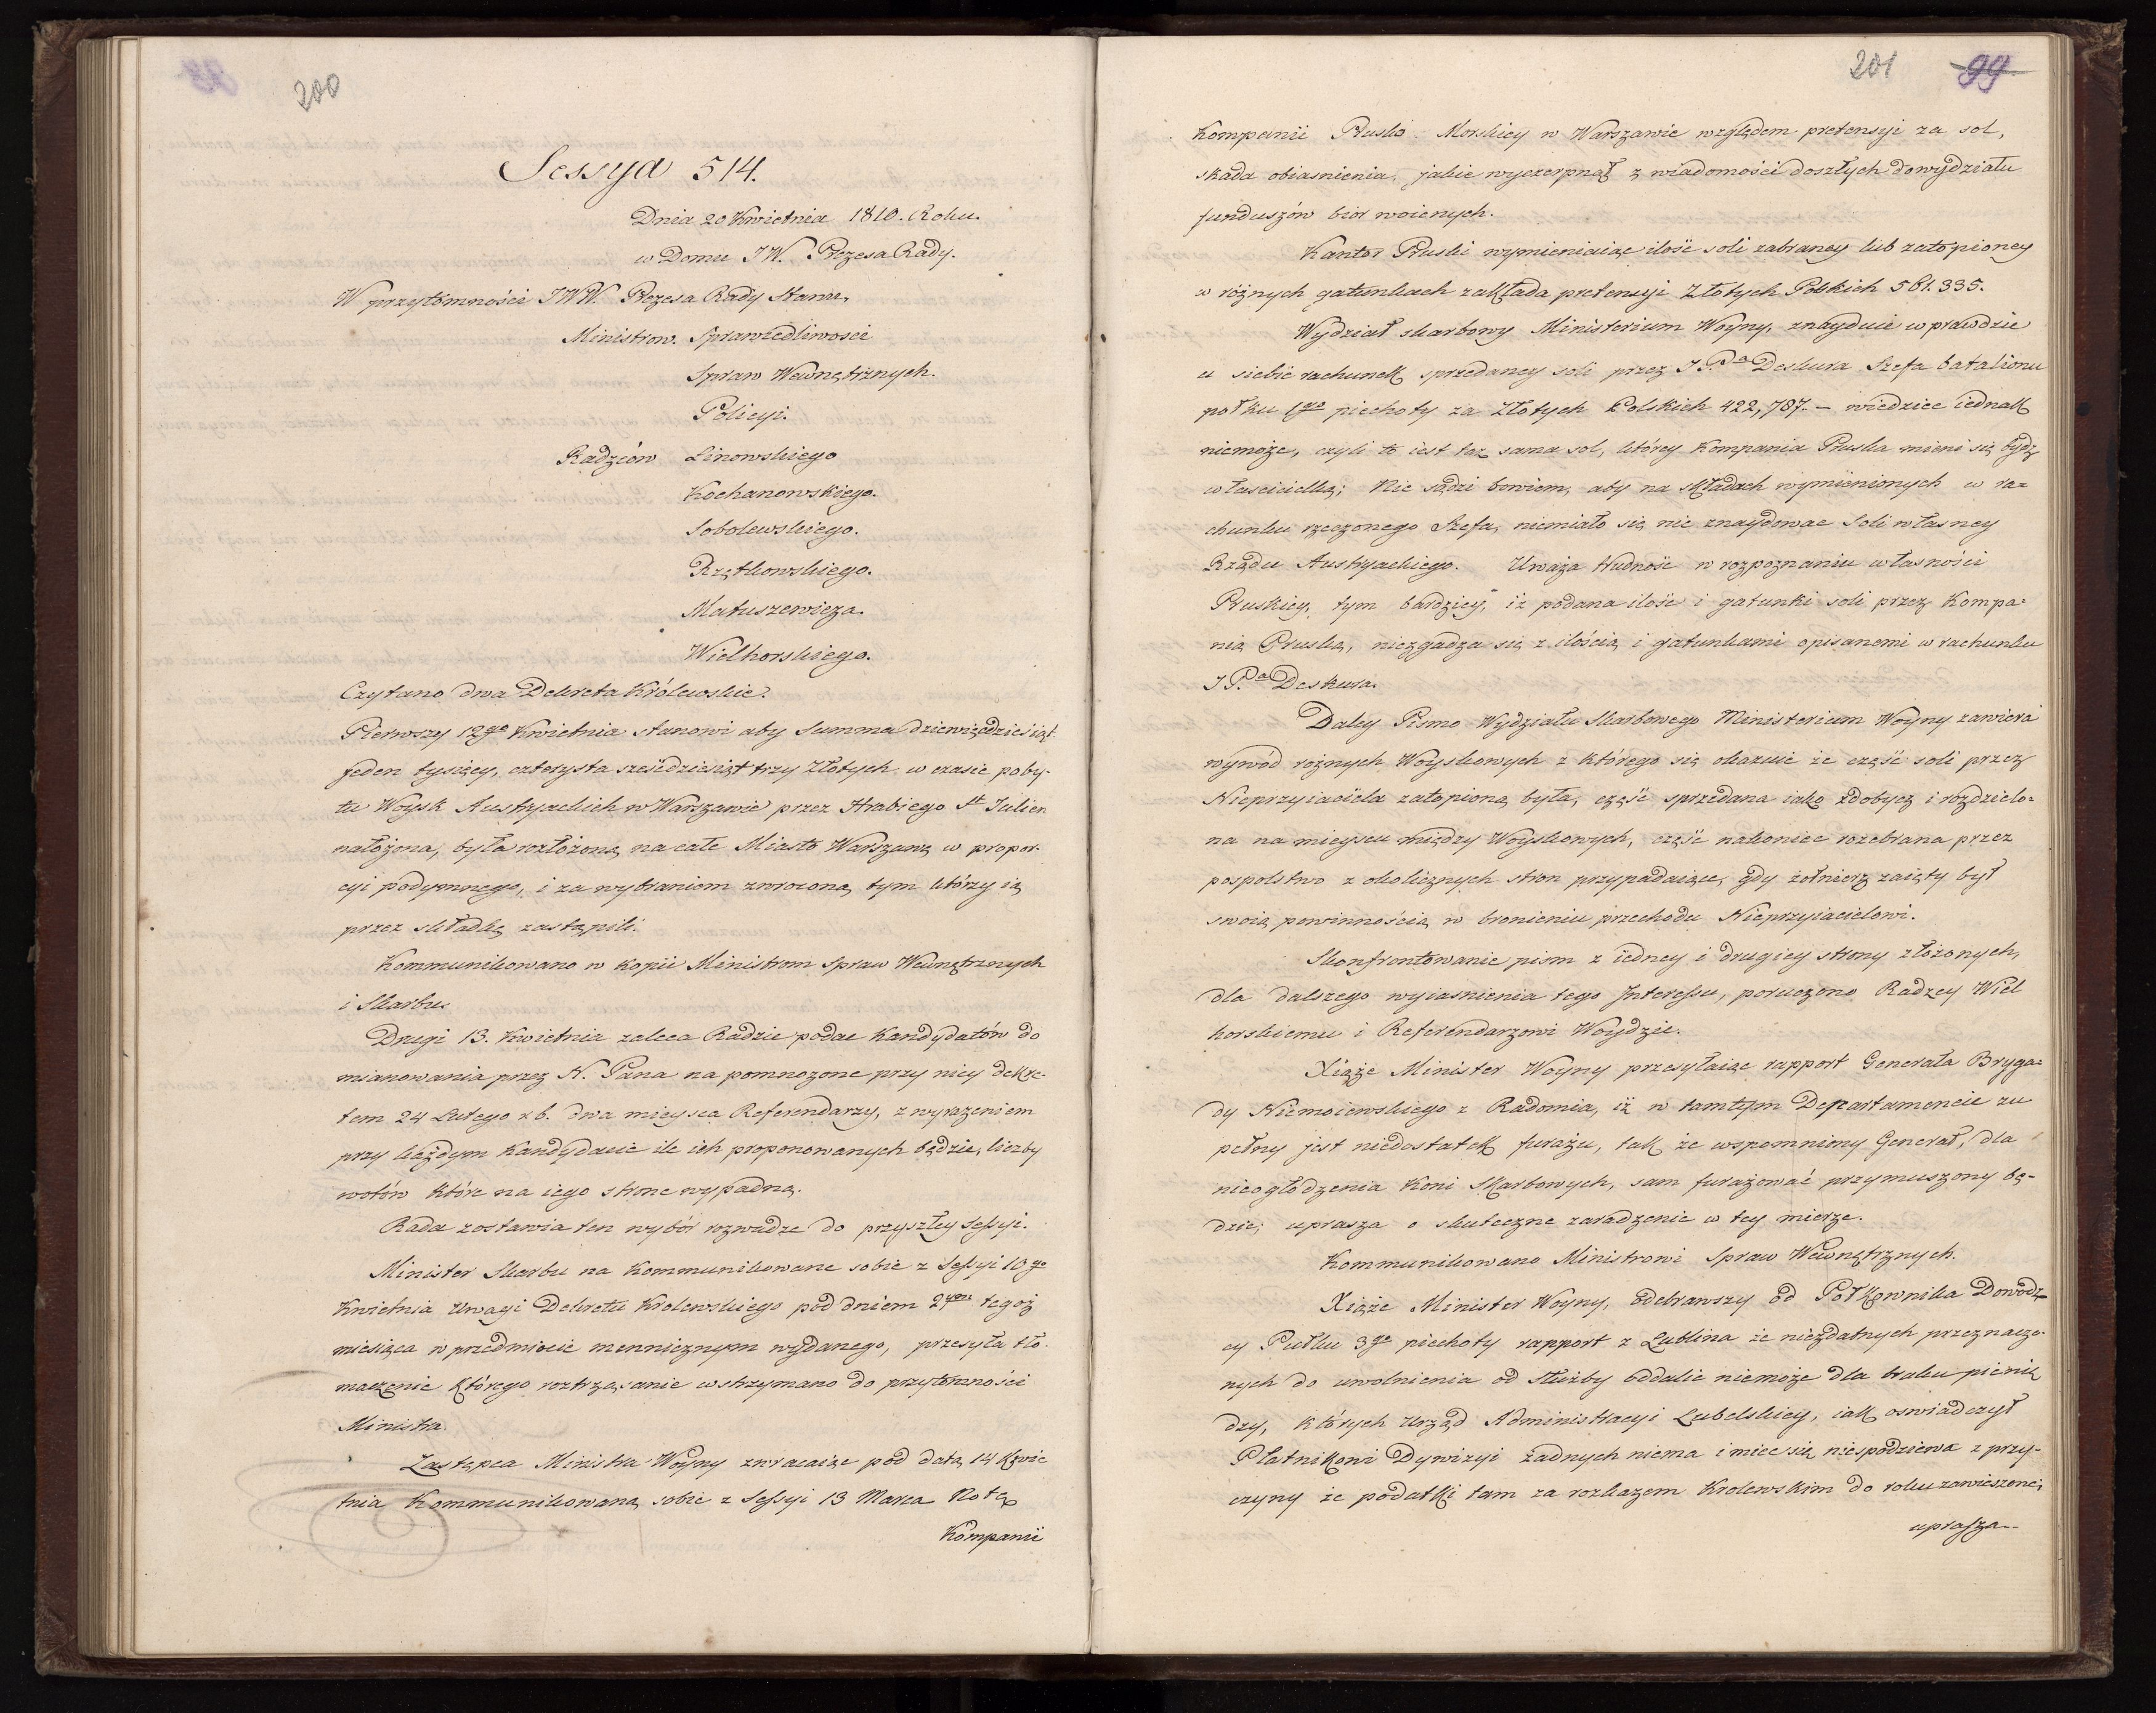 200
Sessya 514.
Dnia 20 Kwietnia 1810. Roku.
w Domu JW. Prezesa Rady.
W przytomności JWW. Prezesa Rady Stanu,
Ministrow. Sprawiedliwosci
Spraw Wewnętrznych.
Policyi.
Radzców Linowskiego
Kochanowskiego.
Sobolewskiego.
Rzętkowskiego.
Matuszewicza.
Wielhorskiego.
Czytano dwa Dekreta Królewskie.
Pierwszy 12go Kwietnia stanowi aby Summa dziewięćdziesiąt
jeden tysięcy, czterysta sześćdziesiąt trzy Złotych w czasie poby-
tu Woysk Austryackich w Warszawie przez Hrabiego St Julien
nałożona, była rozłożoną na całe Miasto Warszawę w propor-
cyi podymnego, i za wybraniem zwroconą tym którzy ią
przez składkę zastąpili.
Kommunikowano w kopii Ministrom Spraw Wewnętrznych
i Skarbu.
Drugi 13. Kwietnia zaleca Radzie podac Kandydatów do
mianowania przez N. Pana na pomnozone przy niey dekre-
tem 24 Lutego r.b. dwa mieysca Referendarzy, z wyrazeniem
przy każdym Kandydacie ile ich proponowanych będzie, liczby
wotów które na iego stronę wypadną.
Rada zostawia ten wybór rozwadze do przyszłey Sessyi.
Minister Skarbu na Kommunikowane sobie z Sessyi 10go
Kwietnia Uwagi Dekretu Krolewskiego pod dniem 2gim tegoż
miesiąca w przedmiocie mennicznym wydanego, przesyła tło-
maczenie którego roztrząsanie wstrzymano do przytomności
Ministra.
Zastępca Ministra Woyny zwracaiąc pod datą 14 Kwie
tnia Kommunikowaną sobie z Sessyi 13 Marca Notę
Kompanii
201 99
Kompanii Prusko Morskiey w Warszawie względem pretensyi za sol,
składa obiasnienia, jakie wyczerpnął z wiadomości doszłych do wydziału
funduszów biór woienych.
Kantor Pruski wymieniaiąc ilość soli zabraney lub zatopioney
w różnych gatunkach zakłada pretensyi Złotych Polskich 561.335.
Wydział skarbowy Ministerium Woyny, znayduie wprawdzie
u siebie rachunek sprzedaney soli przez J.P.a Deskura Szefa batalionu
połku 1go piechoty za Złotych Polskich 422,787. – wiedziec iednak
niemoże, czyli to iest taż sama sol, którey Kompania Pruska mieni się bydz
właścicielką; Nie sądzi bowiem, aby na składach wymienionych w ra=
chunku rzeczonego Szefa, niemiało się nic znaydowac Soli własney
Rządu Austryackiego. Uważa trudność w rozpoznaniu własności
Pruskiey, tym bardziey, iż podana ilość i gatunki soli przez Kompa=
nią Pruską, niezgadza się z ilością i gatunkami opisanemi w rachunku
J P.a Deskura.
Daley Pismo Wydziału Skarbowego Ministerium Woyny zawiera
wywód rożnych Woyskowych z którego się okazuie że część soli przez
Nieprzyiaciela zatopioną była, część sprzedana iako zdobycz i rozdzielo=
na na mieyscu między Woyskowych, część nakoniec rozebrana przez
pospolstwo z okolicznych stron przypadaiące, gdy żołnierz zaięty był
swoią powinnością w bronieniu przechodu Nieprzyiacielowi.
Skonfrontowanie pism z iedney i drugiey strony złożonych,
dla dalszego wyiasnienia tego Interessu, poruczono Radzcy Wiel
horskiemu i Referendarzowi Woydzie.
Xiąże Minister Woyny przesyłaiąc rapport Generała Bryga=
dy Niemoiewskiego z Radomia, iż w tamtym Departamencie zu
pełny jest niedostatek furażu, tak że wspomnimy Generał, dla
nieogłodzenia Koni Skarbowych, sam furażować przymuszony bę-
dzie; uprasza o skuteczne zaradzenie w tey mierze.
Kommunikowano Ministrowi Spraw Wewnętrznych.
Xiąże Minister Woyny, odebrawszy od Połkownika Dowódz-
cy Pułku 3go piechoty rapport z Lublina że niezdatnych przeznaczo-
nych do uwolnienia od służby oddalic niemoże dla braku pienię
dzy, których Urząd Administracyi Lubelskiey, iak oswiadczył
Płatnikowi Dywizyi żadnych niema i miec się niespodziewa z przy-
czyny że podatki tam za rozkazem Krolewskim do roku zawieszone;
uprasza